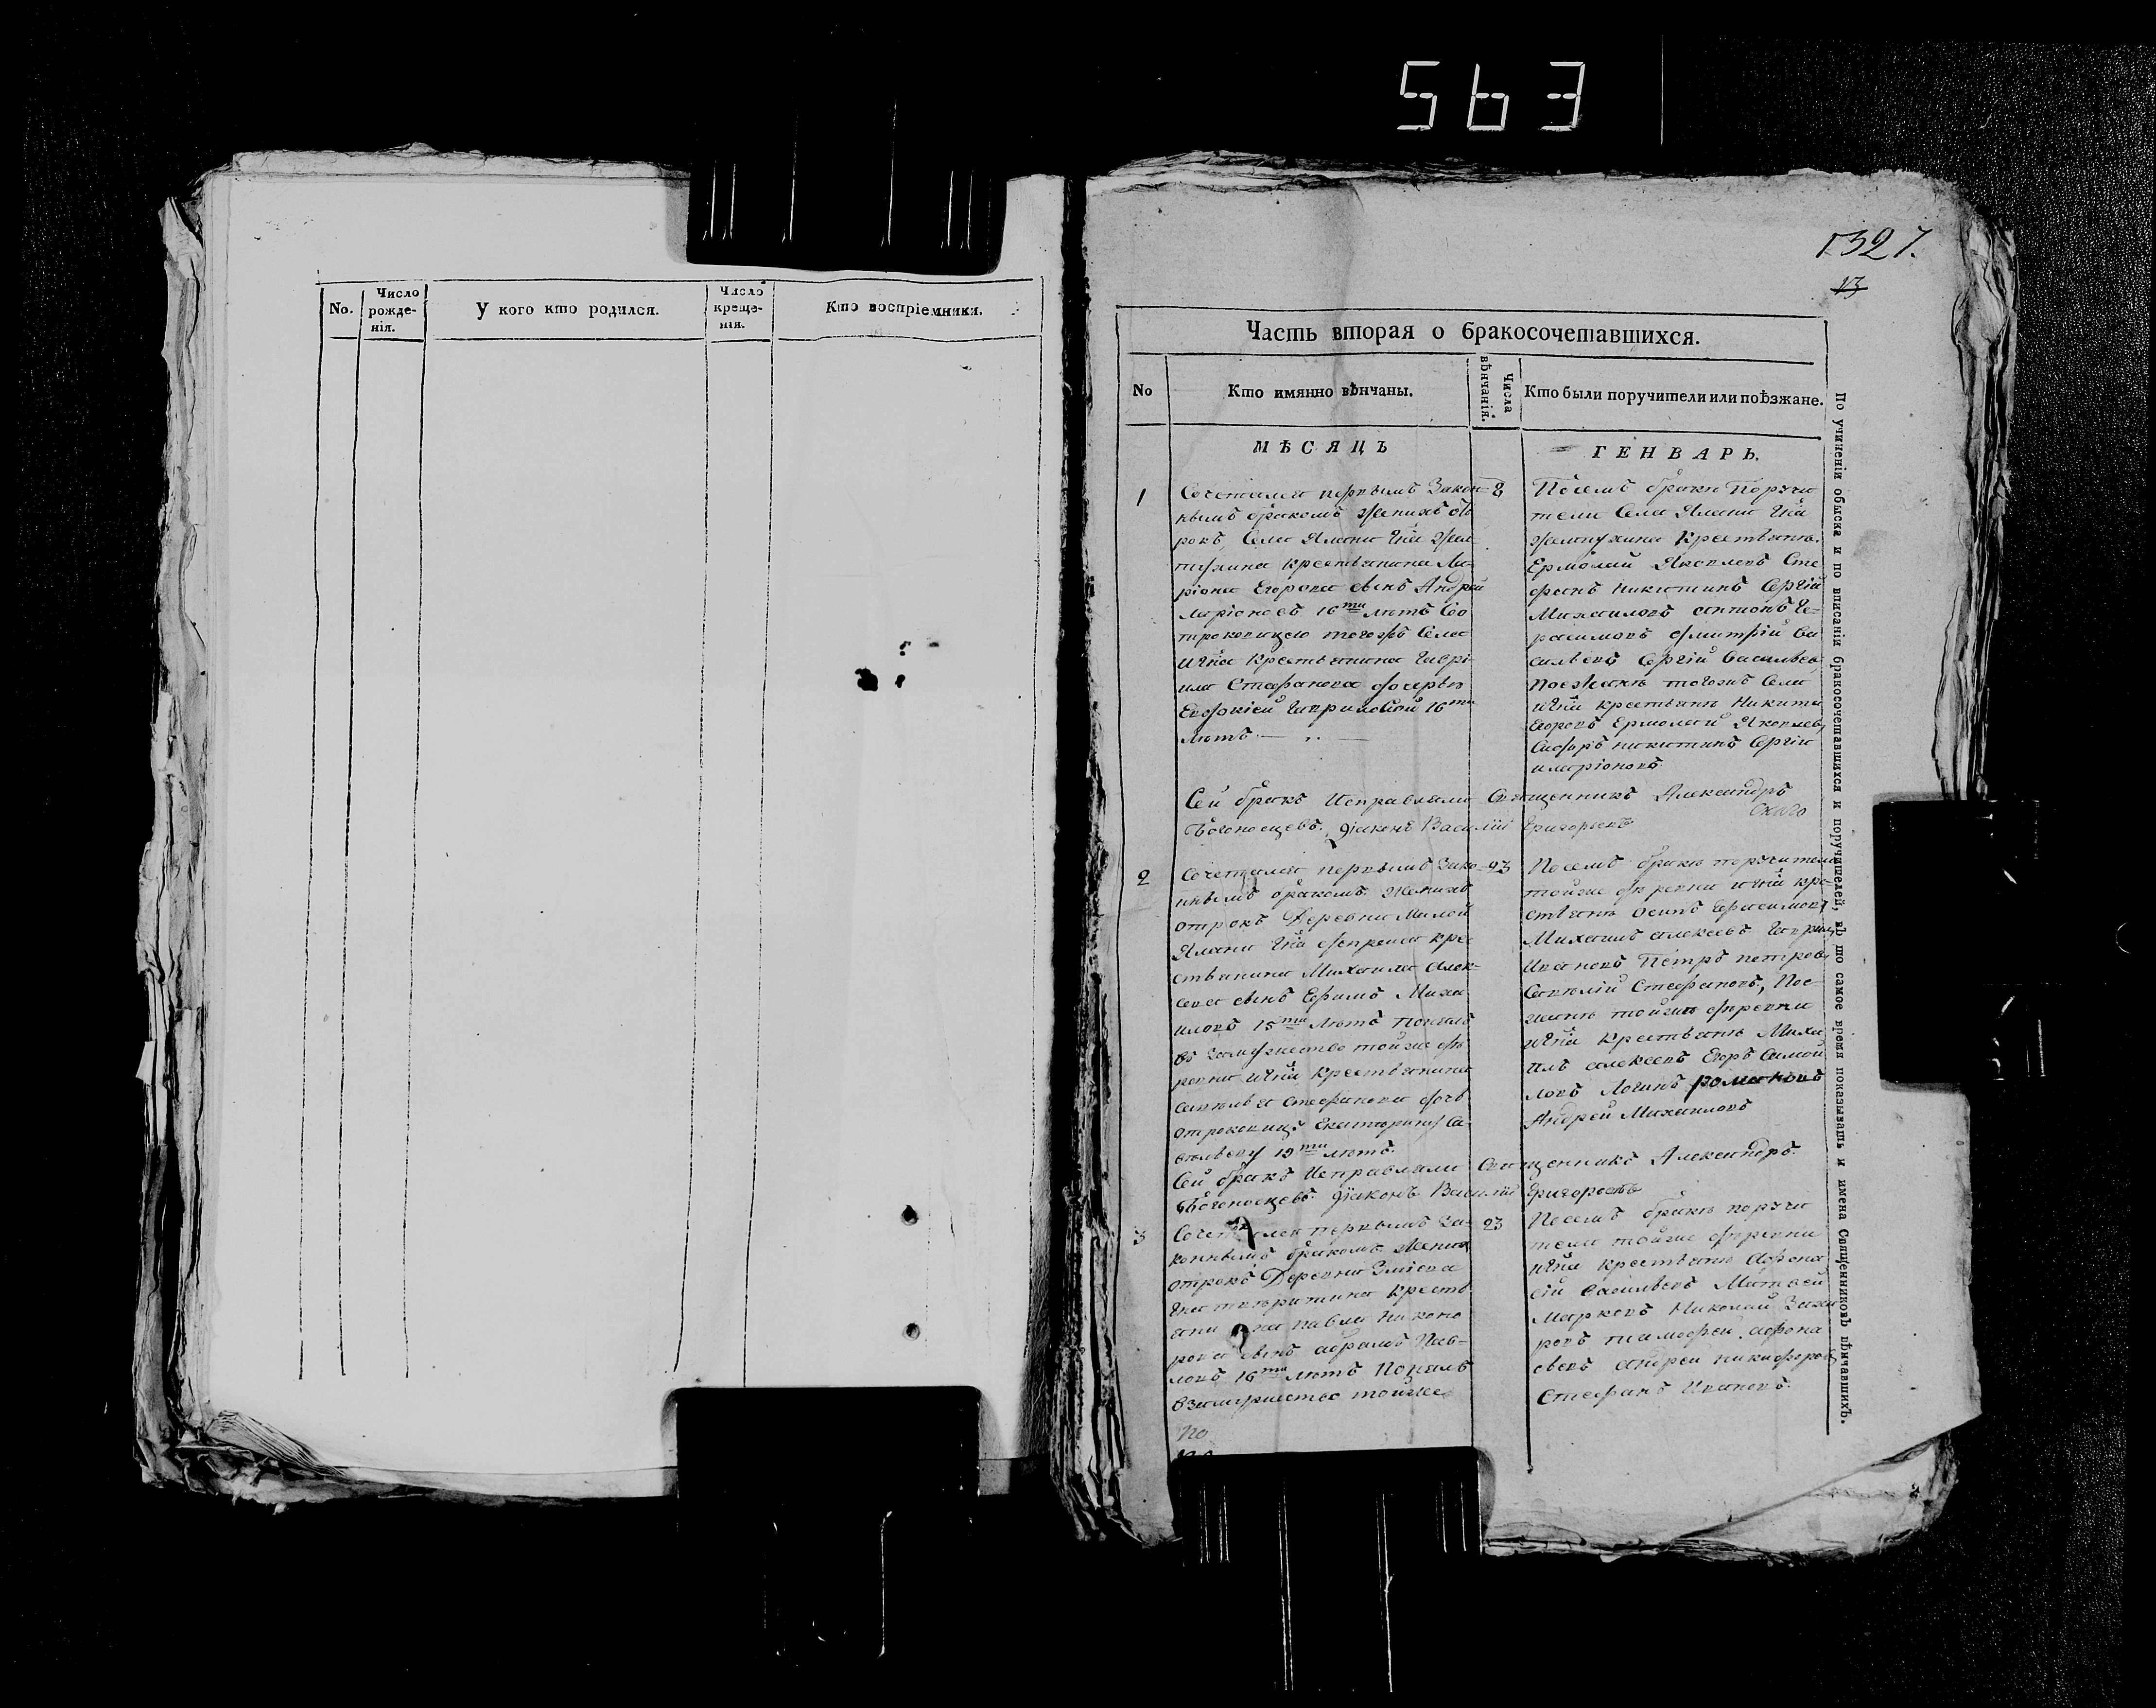 563
No.
Число рожде-нія.
У кого кто родился.
Число креще-нія.
Кто воспріемники.
1327.
13
Часть вторая о бракосочетавшихся.
No
Кто имянно вѣнчаны.
Числа вѣнчанія.
Кто были поручители или поѣзжане.
МѢСЯЦЪ
ГЕНВАРЬ.
1
Сочетался первымъ Закон
нымъ бракомъ Женихъ от
рокъ, Села
крестьянина Ла
ріона Егорова сынъ Андрей
Ларіоновъ 16ти лѣтъ Со
отроковицею тогожъ Села
крестьянина Гаврі
ила Стефанова дочерью
Гавриловой 16ти
лѣтъ
8
По семъ браке Поручи
тели Села
крестьяне
Ермолай Яковлевъ Сте
фанъ Никитинъ Сергій
Михаиловъ Ге
расимовъ Дмитрій Ва
сильевъ Сергій Васильевъ
Поезжане тогожъ Села
крестьяне Никита
Егоровъ Ермолай Яковлевъ
Сидоръ Никитинъ Сергій
Иларіоновъ
Сей бракъ Исправляли Священникъ Александръ
Богоносцевъ. Діаконъ Василій Григорьевъ
2
Сочетался первымъ Зако
ннымъ бракомъ Женихъ
отрокъ Деревни Малой
кре
стьянина Михаила Алек
сеева сынъ Ефимъ Миха
иловъ 15ти лѣтъ Понялъ
въ замужество тойже де
ревни крестьянина
Савельева Стефанова дочь
отроковицу Екатерину Са
вельеву 19ти лѣтъ.
23
По семъ браке поручители
тойже деревни кре
стьяне Осипъ Герасимовъ
Михаилъ Алексеевъ Гаврила
Ивановъ Петръ Петровъ
Савелій Стефановъ, Пое
зжане тойже деревни
крестьяне Миха
илъ Алексеевъ Егоръ Самой
ловъ Логинъ Романовъ
Андрей Михаиловъ
Сей бракъ Исправляли Священникъ Александръ
Богоносцевъ. Діаконъ Василій Григорьевъ
3
Сочетался первымъ За
коннымъ бракомъ Женихъ
отрокъ Деревни Зміева
кресть
янина Павла Никоно
рова сынъ Абрамъ Пав
ловъ 16ти лѣтъ Понялъ
взамужество тойже
по
23
По семъ браке поручи
тели тойже деревни
крестьяне Афона
сій Васильевъ Матвей
Марковъ Николай Заха
ровъ Тимофей Афона
сьевъ Андрей Никифоровъ
Стефанъ Ивановъ.
По учиненіи обыска и по вписаніи бракосочетавшихся и поручителей, въ то самое время показывать и имена Священниковъ вѣнчавшихъ.